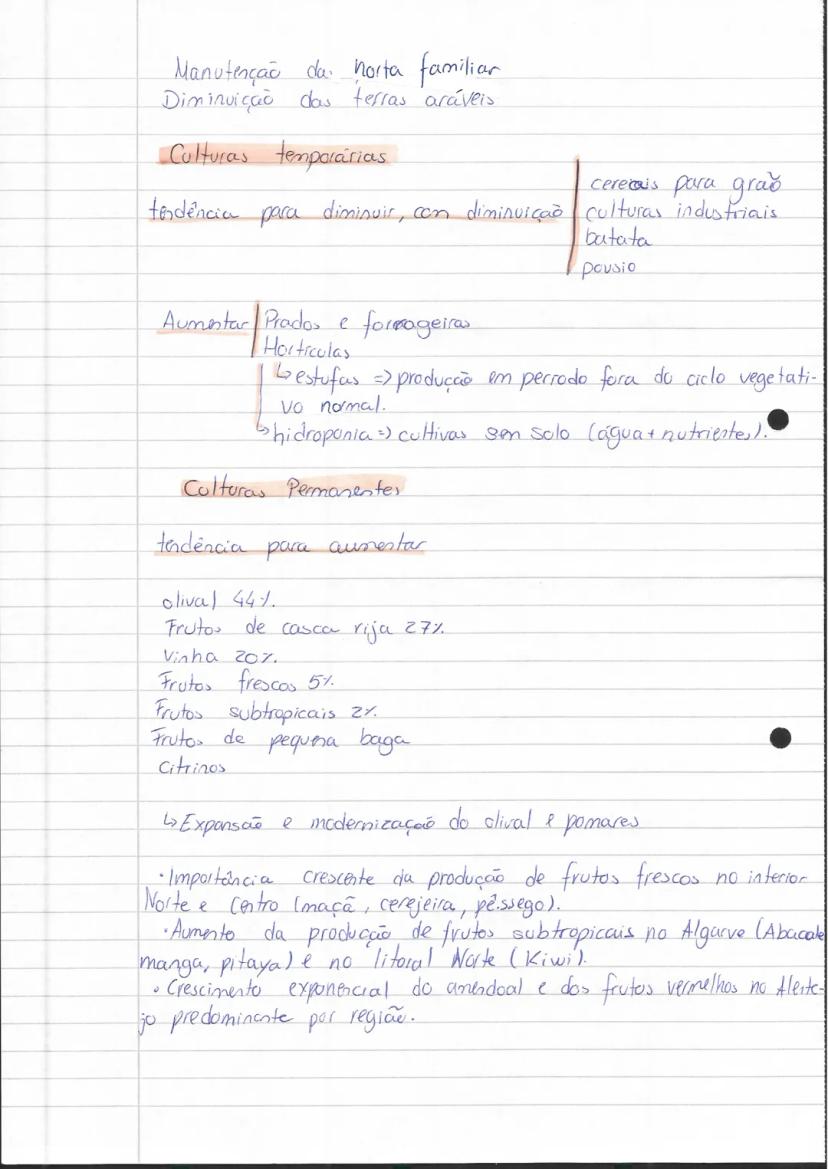 Manutenção da horta familiar
Diminuição das terras aráveis
Culturas temporárias
tendência para diminuir, com diminuição
cereais para grão
culturas industriais
batata
pousio
Aumentar
Prados e forrageiras
Hortículas
↳ estufas => produção em período fora do ciclo vegetati-
vo normal.
↳ hidroponia => cultivas sem solo (água + nutrientes).
Culturas Permanentes
tendência para aumentar
olival 44%.
Frutos de casca rija 27%.
Vinha 20%.
Frutos frescos 5%.
Frutos subtropicais 2%.
Frutos de pequena baga
Citrinos
↳ Expansão e modernização do olival e pomares
· Importância crescente da produção de frutos frescos no interior
Norte e Centro (maçã, cerejeira, pêssego).
· Aumento da producção de frutos subtropicais no Algarve (Abacate
manga, pitaya) e no litoral Norte (Kiwi).
· Crescimento exponencial do amendoal e dos frutos vermelhos no Alente-
jo predominante por região.